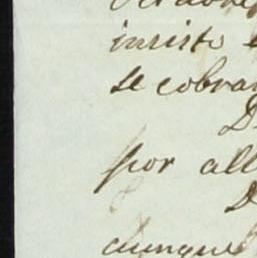 insisto
se cobra
D
por all
D
aunque